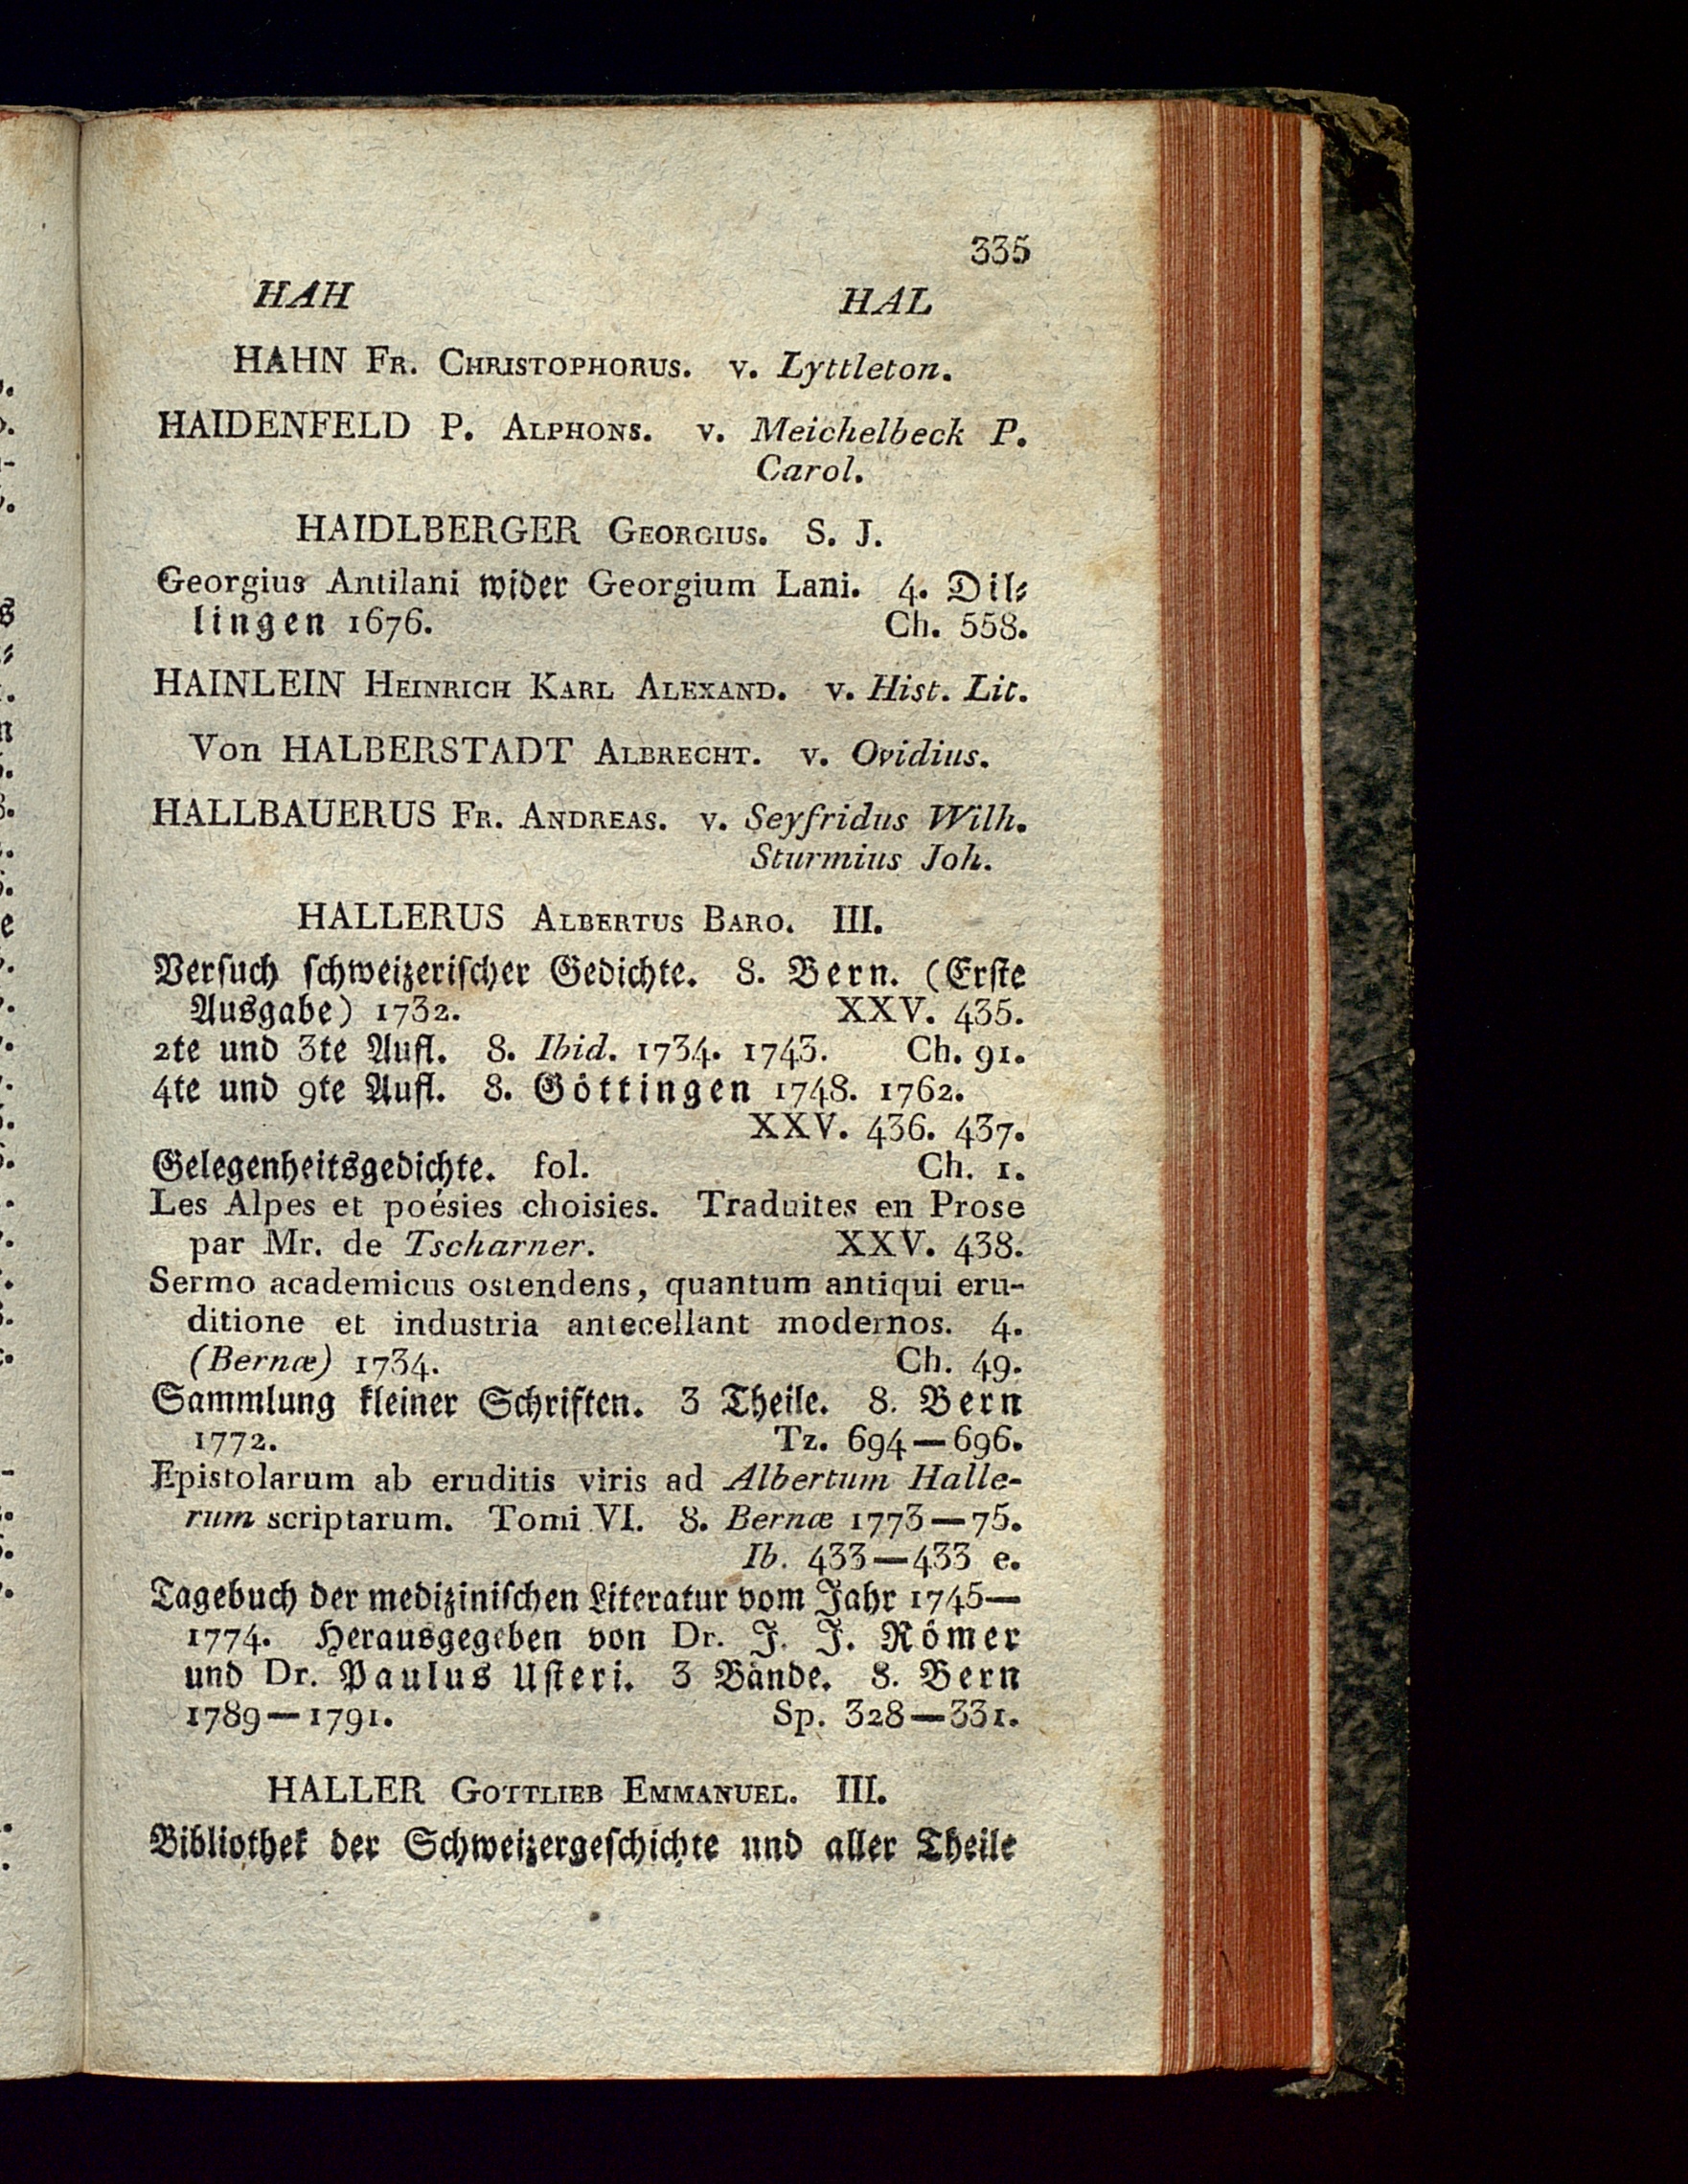 335
HAH HAL
HAHN FR. CHRISTOPHORUS. v. Lyttleton.
HAIDENFELD P. ALPHONS. v. Meichelbeck P.
Carol.
HAIDLBERGER GEORGIUS. S. J.
Georgius Antilani wider Georgium Lani. 4. Dil⸗
lingen 1676. Ch. 558.
HAINLEIN HEINRICH KARL ALEXAND. v. Hist. Lit.
Von HALBERSTADT ALBRECHT. v. Ovidius.
HALLBAUERUS FR. ANDREAS. v. Seyfridus Wilh.
Sturmius Joh.
HALLERUS ALBERTUS BARO. III.
Versuch schweizerischer Gedichte. 8. Bern. (Erste
Ausgabe) 1732. XXV. 435.
2te und 3te Aufl. 8. Ibid. 1734. 1743. Ch. 91.
4te und 9te Aufl. 8. Göttingen 1748. 1762.
XXV. 436. 437.
Gelegenheitsgedichte. fol. Ch. 1.
Les Alpes et poésies choisies. Traduites en Prose
par Mr. de Tscharner. XXV. 438.
Sermo academicus ostendens, quantum antiqui eru-
ditione et industria antecellant modernos. 4.
(Bernæ) 1734. Ch. 49.
Sammlung kleiner Schriften. 3 Theile. 8. Bern
1772. Tz. 694—696.
Epistolarum ab eruditis viris ad Albertum Halle-
rum scriptarum. Tomi VI. 8. Bernæ 1773—75.
Ib. 433—433 e.
Tagebuch der medizinischen Literatur vom Jahr 1745—
1774. Herausgegeben von Dr. J. J. Römer
und Dr. Paulus Usteri. 3 Bände. 8. Bern
1789—1791. Sp. 328—331.
HALLER GOTTLIEB EMMANUEL. III.
Bibliothek der Schweizergeschichte und aller Theile